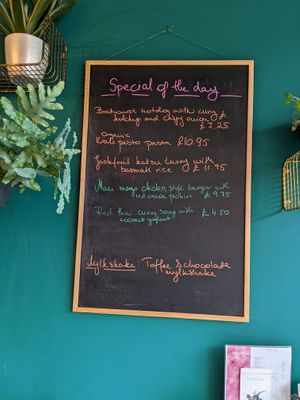 Special of the day
Bratwurst hotdog with curry
ketchup and crispy onion £
£7.25
organic
Kale pesto pasta £10.95
Jackfruit katsu curry with
basmati rice £11.95
mango chicken style burger with
red onion pickles £9.75
Red thai curry soup with £4.50
coconut yoghurt
Mylkshake: Toffee & chocolate
mylkshake